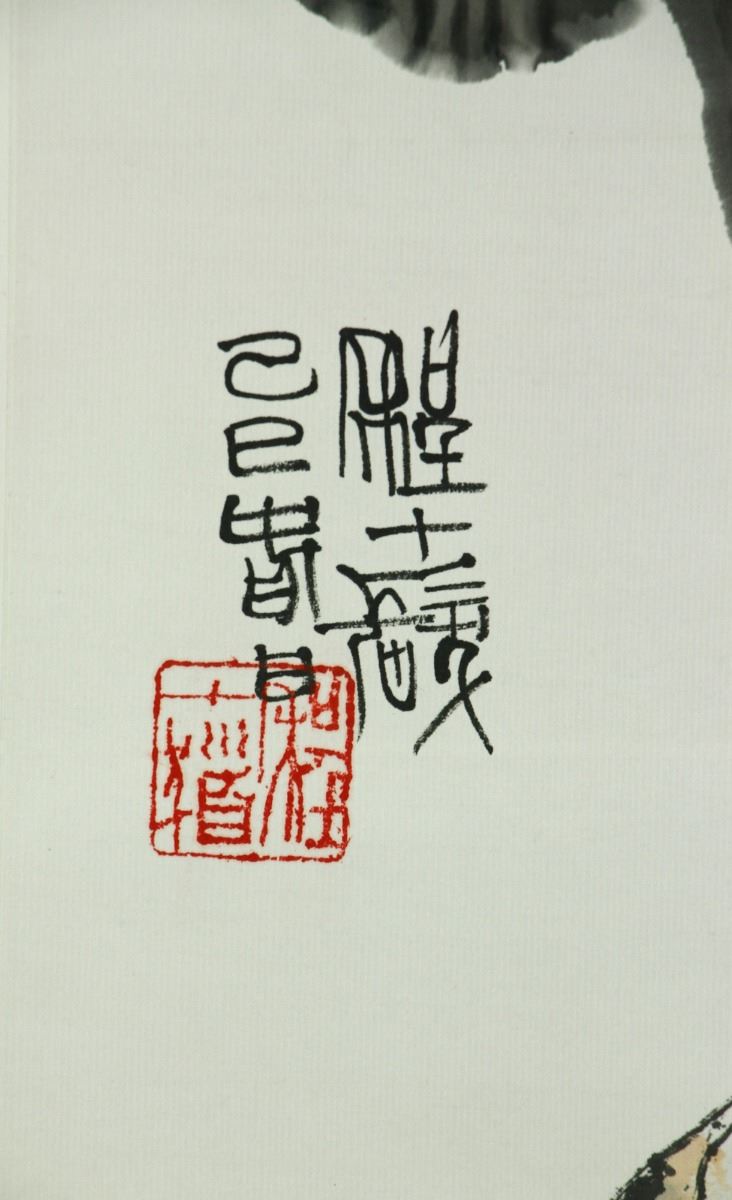 程十髮
己巳春日
程十髮